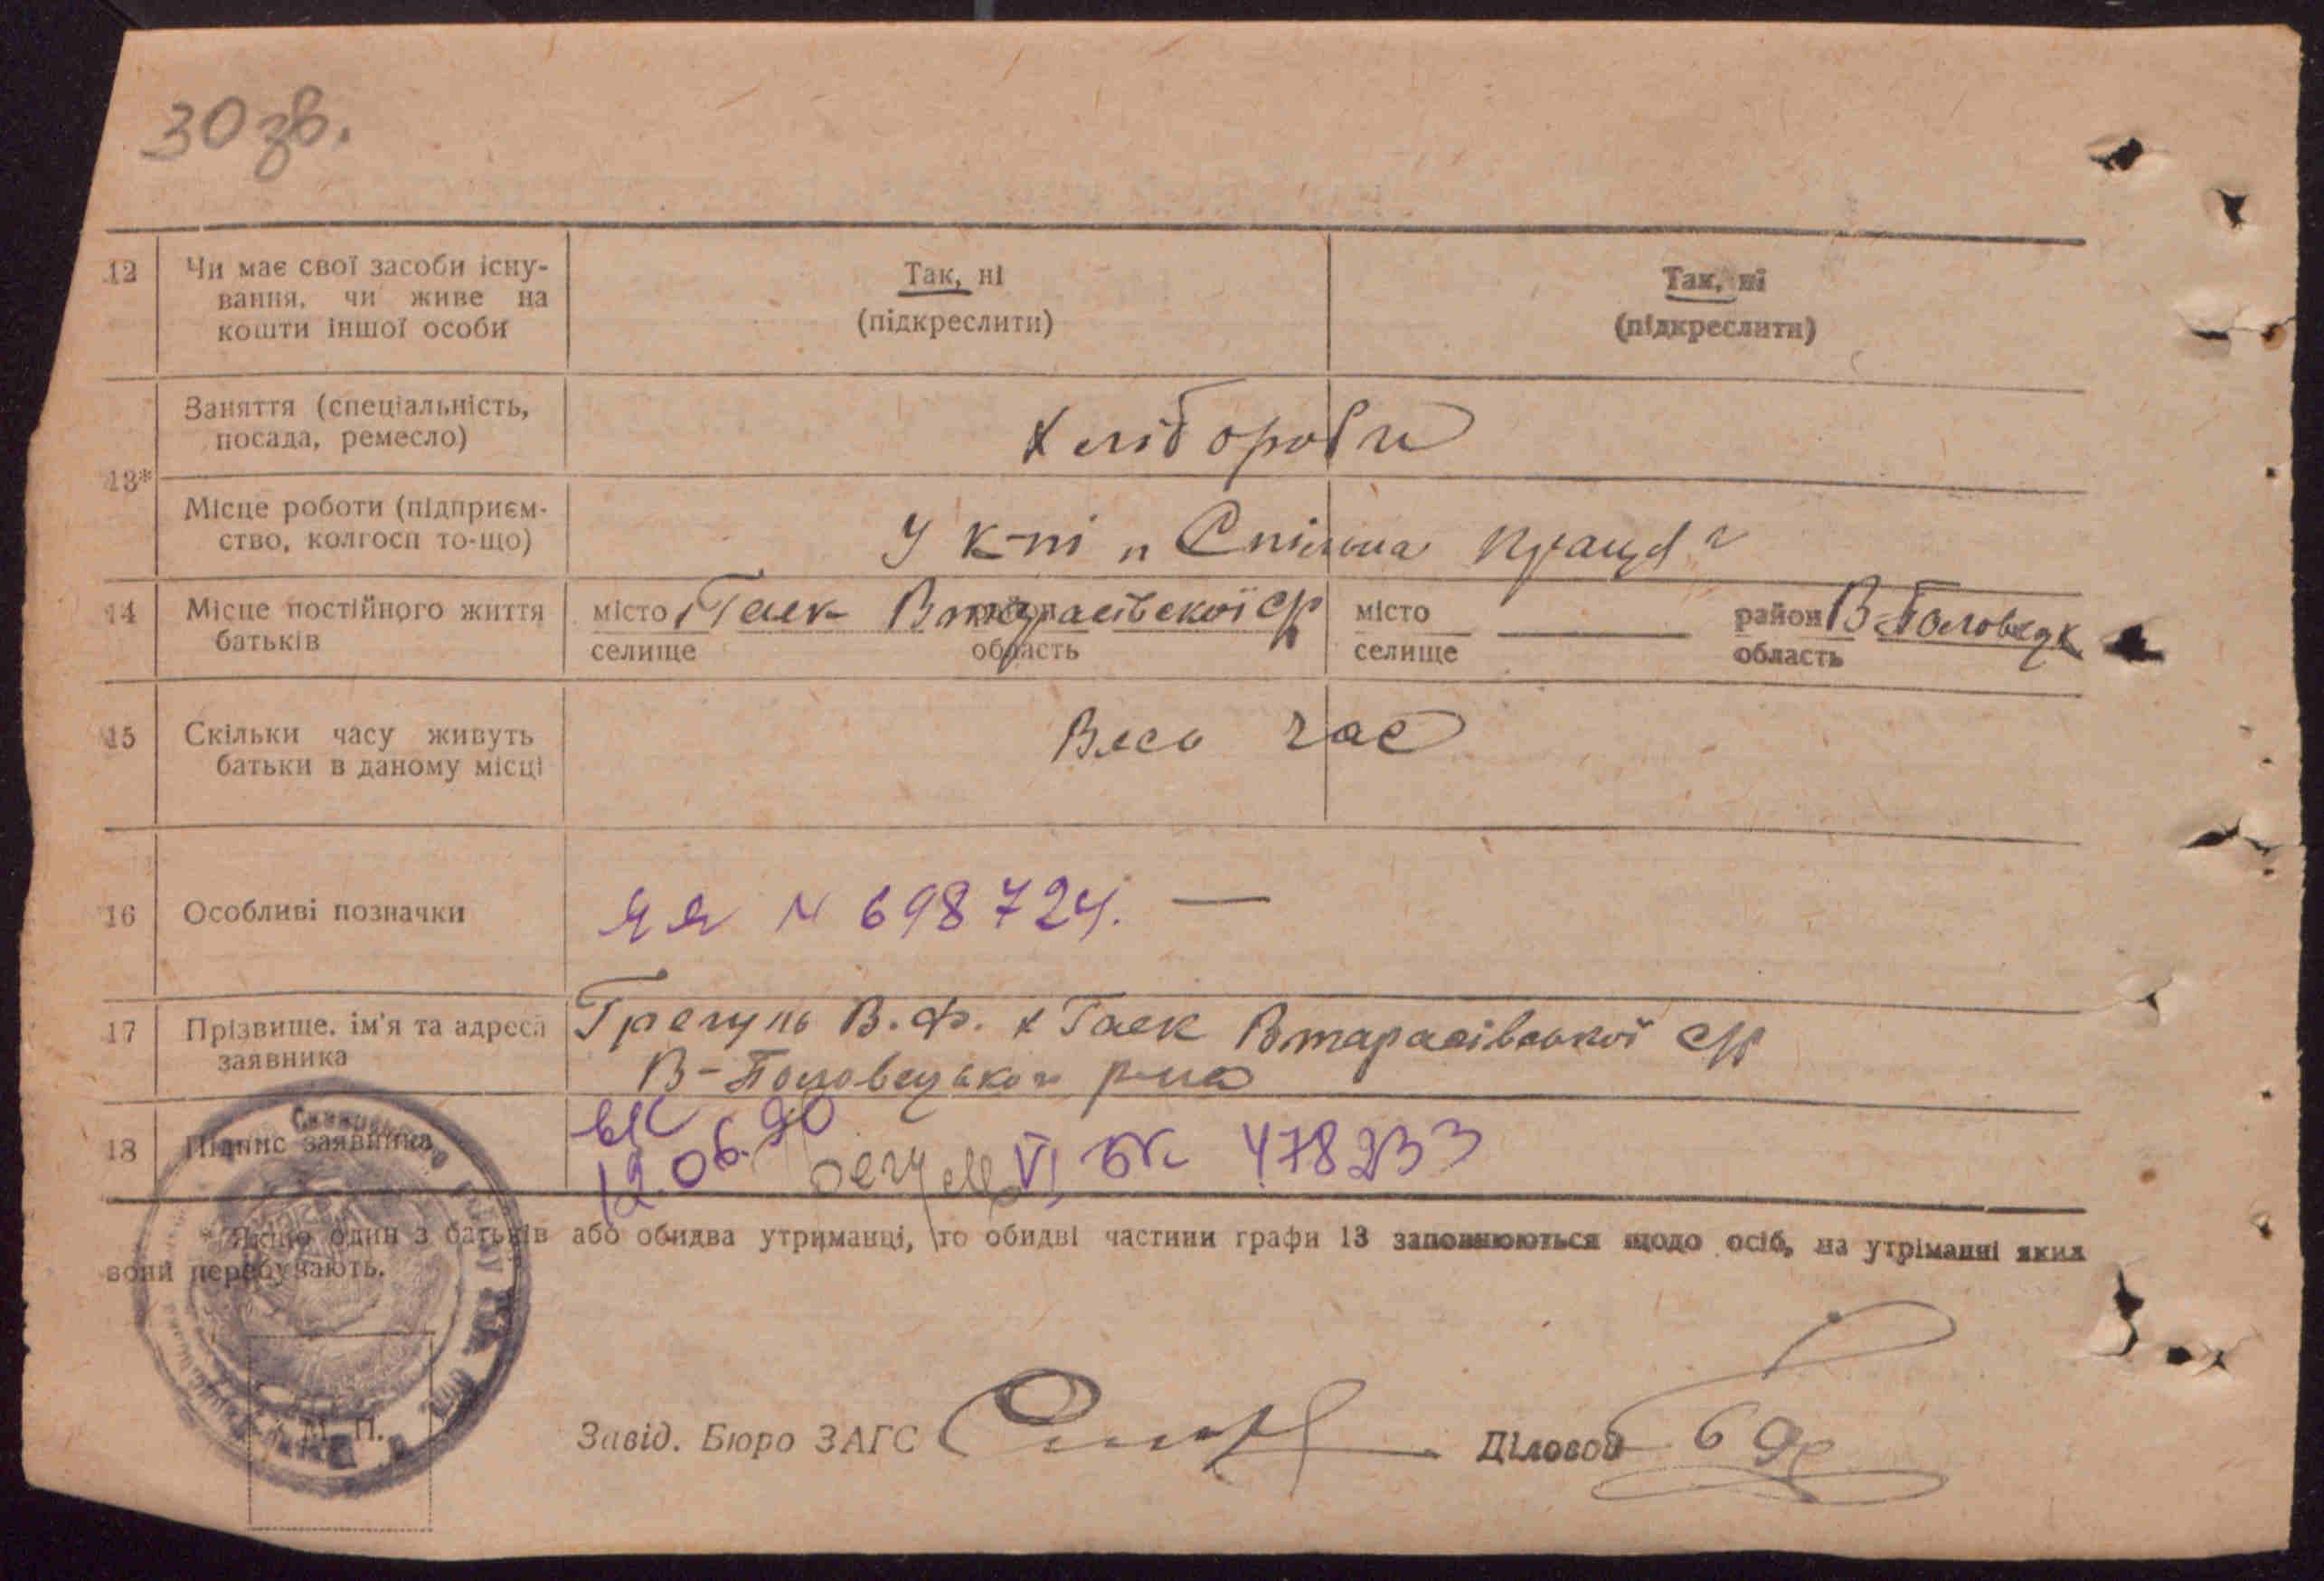 30 зв.
12 Чи має свої засоби існу-
вання, чи живе на
кошти іншої особи
Так, ні
(підкреслити)
Так, ні
(підкреслити)
13*
Заняття (спеціальність,
посада, ремесло)
Хлібороби
Місце роботи (підприєм-
ство, колгосп то-що)
У к-пі „Спільна праця"
14 Місце постійного життя
батьків
місто Гаєк Втарасівської с/р
селище область
місто — район В-Половецьк
селище область
15 Скільки часу живуть
батьки в даному місці
Весь час
16 Особливі позначки
ЯЯ N 698724. —
17 Прізвище, ім'я та адреса
заявника
В.Ф. х Гаєк Втарасівської с/р
В-Половецького р-на
18 Підпис заявника
12.06.90
VI БК 478233
* Якщо один з батьків або обидва утриманці, то обидві частини графи 13 заповнюються щодо осіб, на утріманні яких
вони перебувають.
М. П.
Завід. Бюро ЗАГС
Діловод